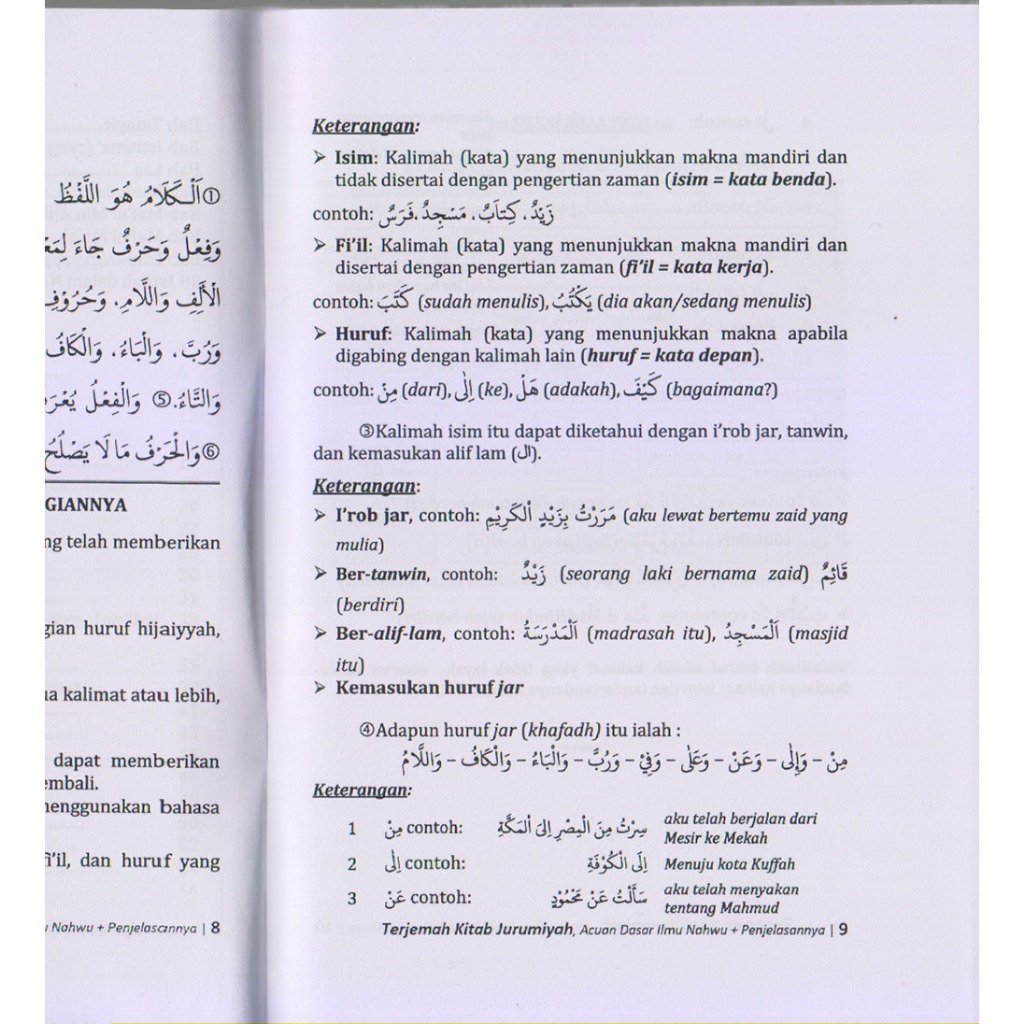 ①اَلْكَلَامُ هُوَ اللَّفْظُ
وَفِعْلٌ وَحَرْفٌ جَاءَ
الْاَلِفِ وَاللَّامِ. وَحُرُوْفِ
وَرُبَّ. وَالْبَاءُ. وَالْكَافُ
وَالتَّاءُ.⑤ وَالْفِعْلُ
⑥وَالْحَرْفُ مَا لَا يَصْلُحُ
GIANNYA
ng telah memberikan
gian huruf hijaiyyah,
kalimat atau lebih,
dapat memberikan
embali.
nenggunakan bahasa
fi'il, dan huruf yang
Nahwu + Penjelasannya | 8
Keterangan:
➢ Isim: Kalimah (kata) yang menunjukkan makna mandiri dan
tidak disertai dengan pengertian zaman (isim = kata benda).
contoh: زَيْدٌ. كِتَابٌ. مَسْجِدٌ. فَرَسٌ
➢ Fi'il: Kalimah (kata) yang menunjukkan makna mandiri dan
disertai dengan pengertian zaman (fi'il = kata kerja).
contoh: كَتَبَ (sudah menulis), يَكْتُبُ (dia akan/sedang menulis)
➢ Huruf: Kalimah (kata) yang menunjukkan makna apabila
digabing dengan kalimah lain (huruf = kata depan).
contoh: مِنْ (dari), اِلٰى (ke), هَلْ (adakah), كَيْفَ (bagaimana?)
③Kalimah isim itu dapat diketahui dengan i'rob jar, tanwin,
dan kemasukan alif lam (ال).
Keterangan:
➢ I'rob jar, contoh: مَرَرْتُ بِزَيْدٍ الْكَرِيْمِ (aku lewat bertemu zaid yang
mulia)
➢ Ber-tanwin, contoh: زَيْدٌ (seorang laki bernama zaid) قَائِمٌ
(berdiri)
➢ Ber-alif-lam, contoh: اَلْمَدْرَسَةُ (madrasah itu), اَلْمَسْجِدُ (masjid
itu)
➢ Kemasukan huruf jar
④Adapun huruf jar (khafadh) itu ialah :
مِنْ – وَاِلٰى – وَعَنْ – وَعَلٰى – وَفِيْ – وَرُبَّ – وَالْبَاءُ – وَالْكَافُ – وَاللَّامُ
Keterangan:
1 مِنْ contoh: سِرْتُ مِنَ الْمِصْرِ اِلَى الْمَكَّةِ aku telah berjalan dari
Mesir ke Mekah
2 اِلٰى contoh: اِلَى الْكُوْفَةِ Menuju kota Kuffah
3 عَنْ contoh: سَأَلْتُ عَنْ مَحْمُوْدٍ aku telah menyakan
tentang Mahmud
Terjemah Kitab Jurumiyah, Acuan Dasar Ilmu Nahwu + Penjelasannya | 9